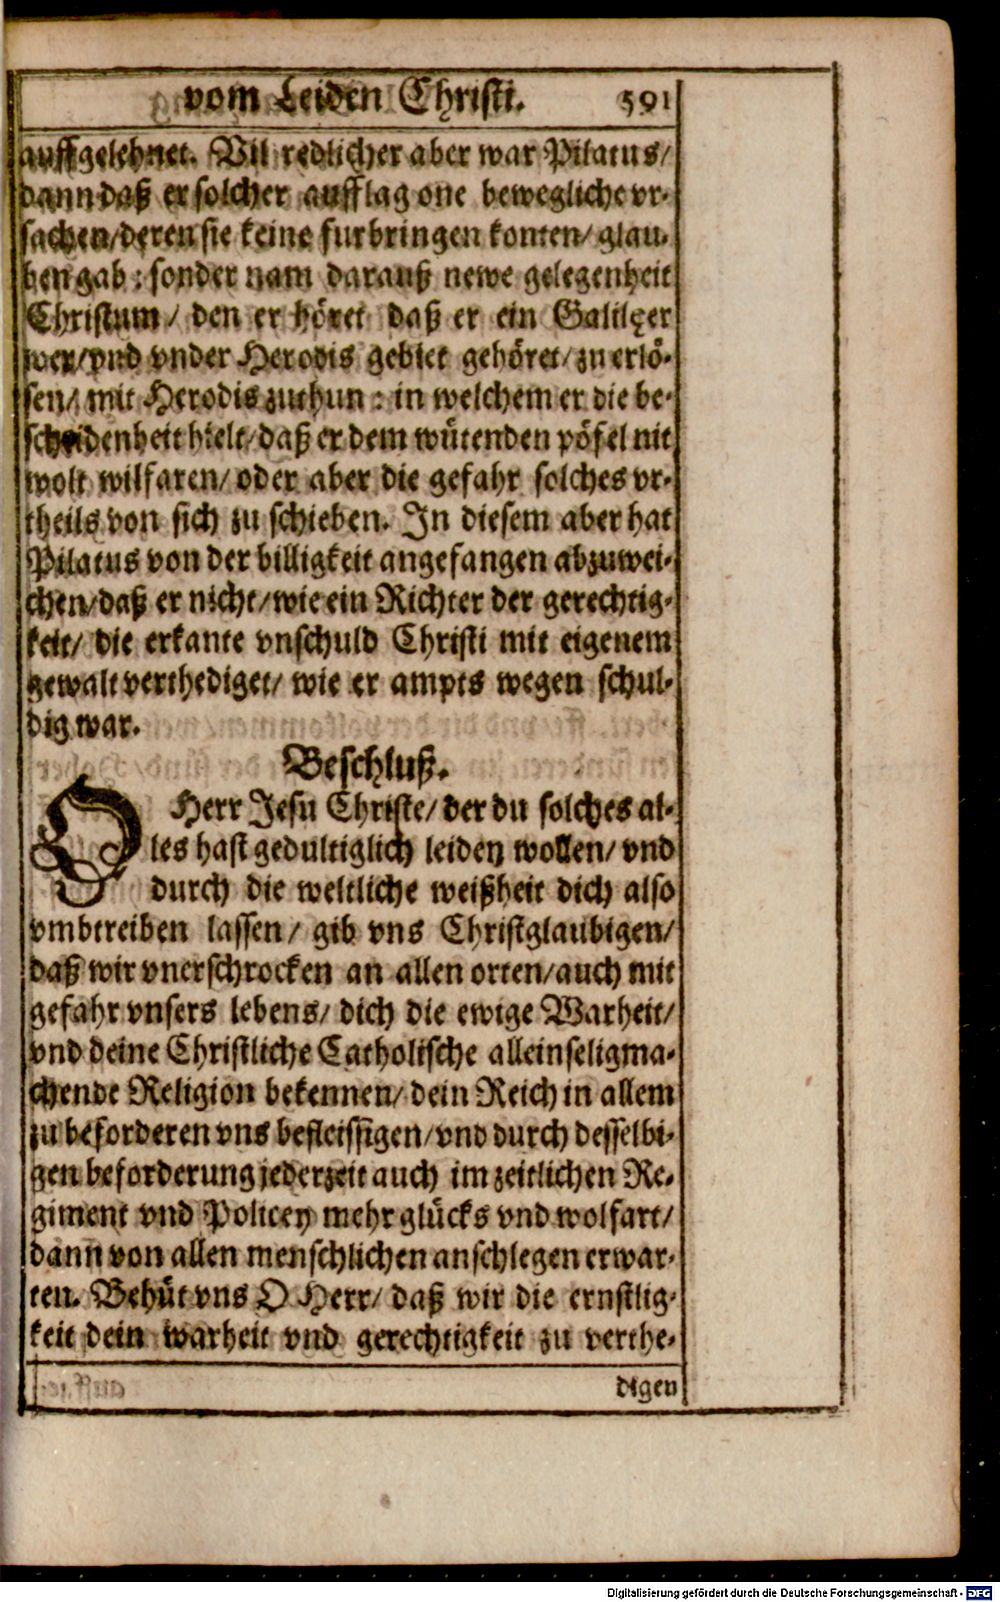 vom Leiden Christi. 591
auffgelehnet. Vil redlicher aber war Pilatus/
dann daß er solcher aufflag one bewegliche vr-
sachen/deren sie keine furbringen konten/ glau-
ben gab: sonder nam darauß newe gelegenheit
Christum/ den er höret daß er ein Galilęer
wer/vnd vnder Herodis gebiet gehöret/ zu erlö-
sen/ mit Herodis zuthun: in welchem er die be-
scheidenheit hielt/daß er dem wütenden pöfel nit
wolt wilfaren/ oder aber die gefahr solches vr-
theils von sich zu schieben. In diesem aber hat
Pilatus von der billigkeit angefangen abzuwei-
chen/daß er nicht/wie ein Richter der gerechtig-
keit/ die erkante vnschuld Christi mit eigenem
gewalt verthediget/ wie er ampts wegen schul-
dig war.
Beschluß.
O Herr Jesu Christe/ der du solches al-
les hast gedultiglich leiden wollen/ vnd
durch die weltliche weißheit dich also
vmbtreiben lassen/ gib vns Christglaubigen/
daß wir vnerschrocken an allen orten/auch mit
gefahr vnsers lebens/ dich die ewige Warheit/
vnd deine Christliche Catholische alleinseligma-
chende Religion bekennen/ dein Reich in allem
zu beforderen vns befleissigen/vnd durch desselbi-
gen beforderung jederzeit auch im zeitlichen Re-
giment vnd Policey mehr glücks vnd wolfart/
dann von allen menschlichen anschlegen erwar-
ten. Behüt vns O Herr/ daß wir die ernstlig-
keit dein warheit vnd gerechtigkeit zu verthe-
digen
Digitalisierung gefördert durch die Deutsche Forschungsgemeinschaft - DFG